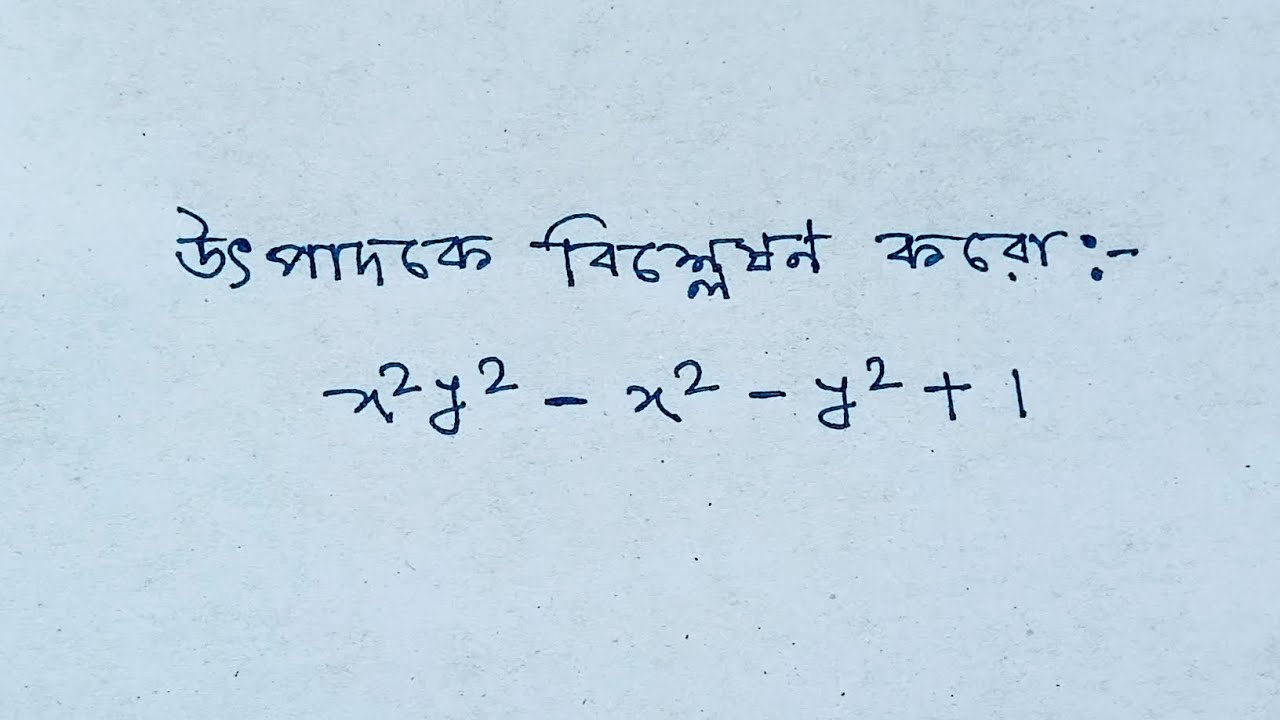 উৎপাদকে বিশ্লেষন করো:-
x²y² - x² - y² + 1